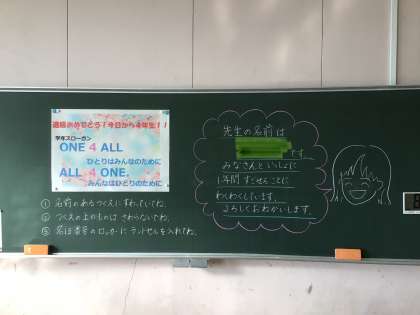 進級おめでとう!今日から4年生!!
学年スローガン
ONE 4 ALL
ひとりはみんなのために
ALL 4 ONE.
みんなはひとりのために
① 名前のあるつくえにすわっていてね。
② つくえの上のものは さわらないでね。
③ 名簿番号のロッカーに ランドセルを入れてね。
先生の名前は
です。
みなさんといっしょに
1年間 すごせることに
わくわくしています。
よろしくおねがいします。
8